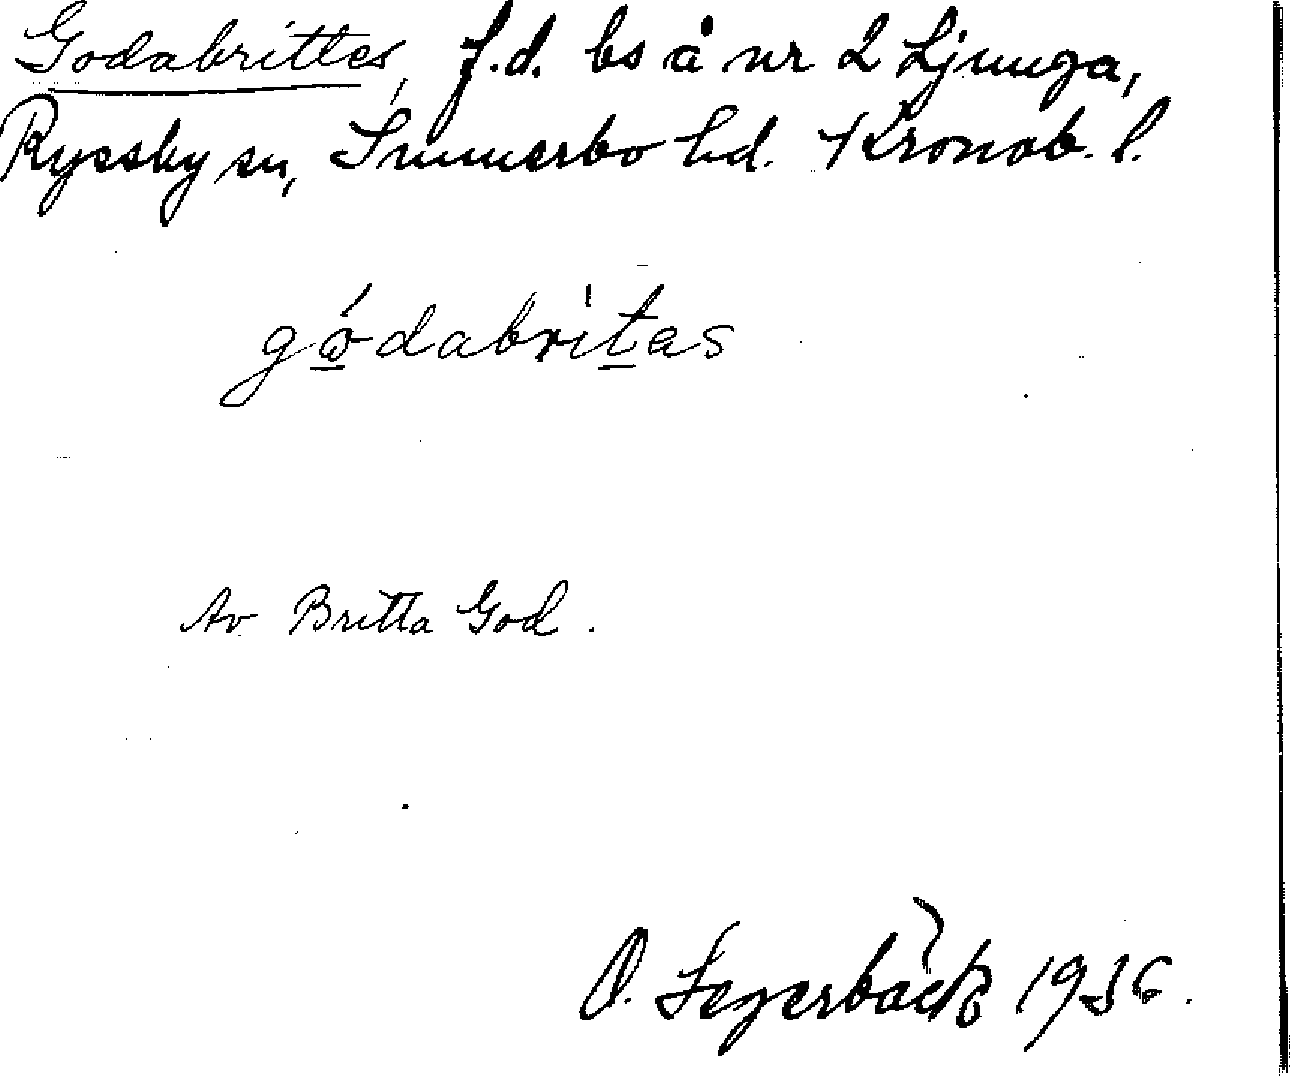 Godabrittes, f.d. bs å nr 2 Ljunga,
Ryssby sn, Sunnerbo hd. Kronob. l.
gódabritas
Av Britta God.
O. Segerbäck 1936.